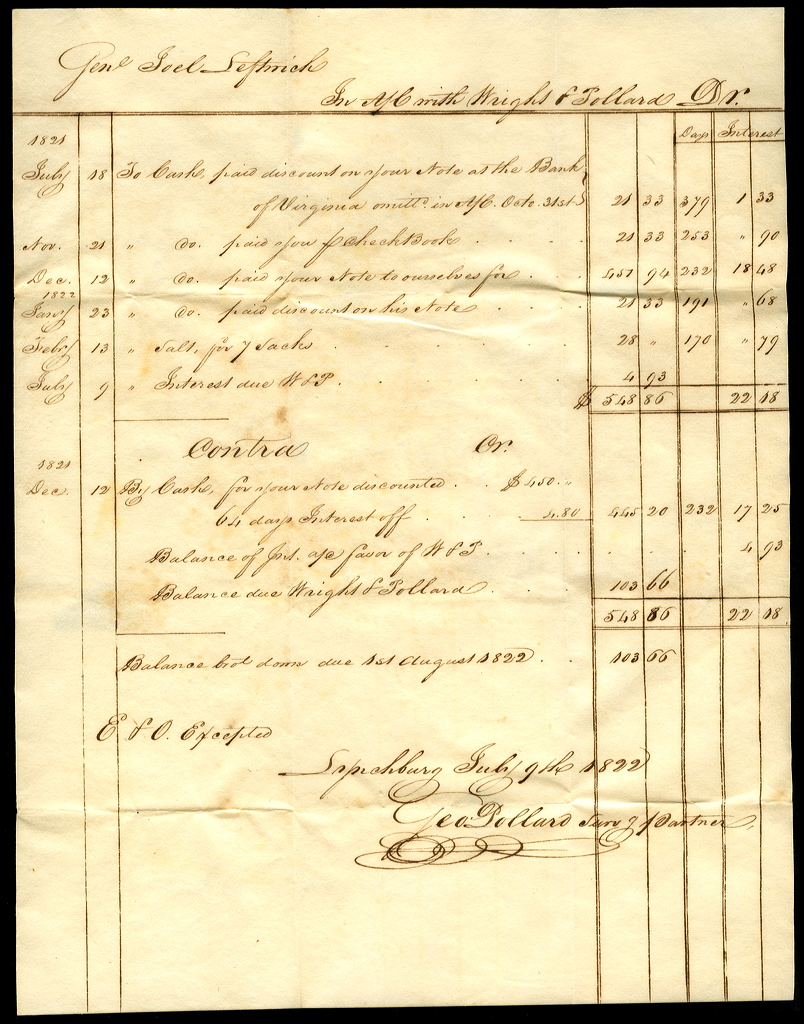 Genl Joel Leftwich
In A/C with Wright & Pollard Dr.
Days Interest
1821
July 18 To Cash, paid discount on your Note at the Bank
of Virginia omittd. in A/C. Octo. 31st 21 33 379 1 33
Nov. 21 " do. paid you p Check Book 21 33 253 " 90
Dec. 12 " do. paid your Note to ourselves for 451 94 232 18 48
1822
Jany 23 " do. paid discount on his Note 21 33 191 " 68
Feby 13 " Salt, for 7 Sacks 28 " 170 " 79
July 9 " Interest due W & P. 4 93
$ 548 86 22 18
Contra Cr.
1821
Dec. 12 By Cash, for your Note discounted $ 450. "
64 days Interest off 4.80 445 20 232 17 25
Balance of Int. a/c favor of W & P. 4 93
Balance due Wright & Pollard 103 66
548 86 22 18
Balance brot down due 1st August 1822 103 66
E & O. Excepted
Lynchburg July 9th 1822
Geo. Pollard Surv g partner